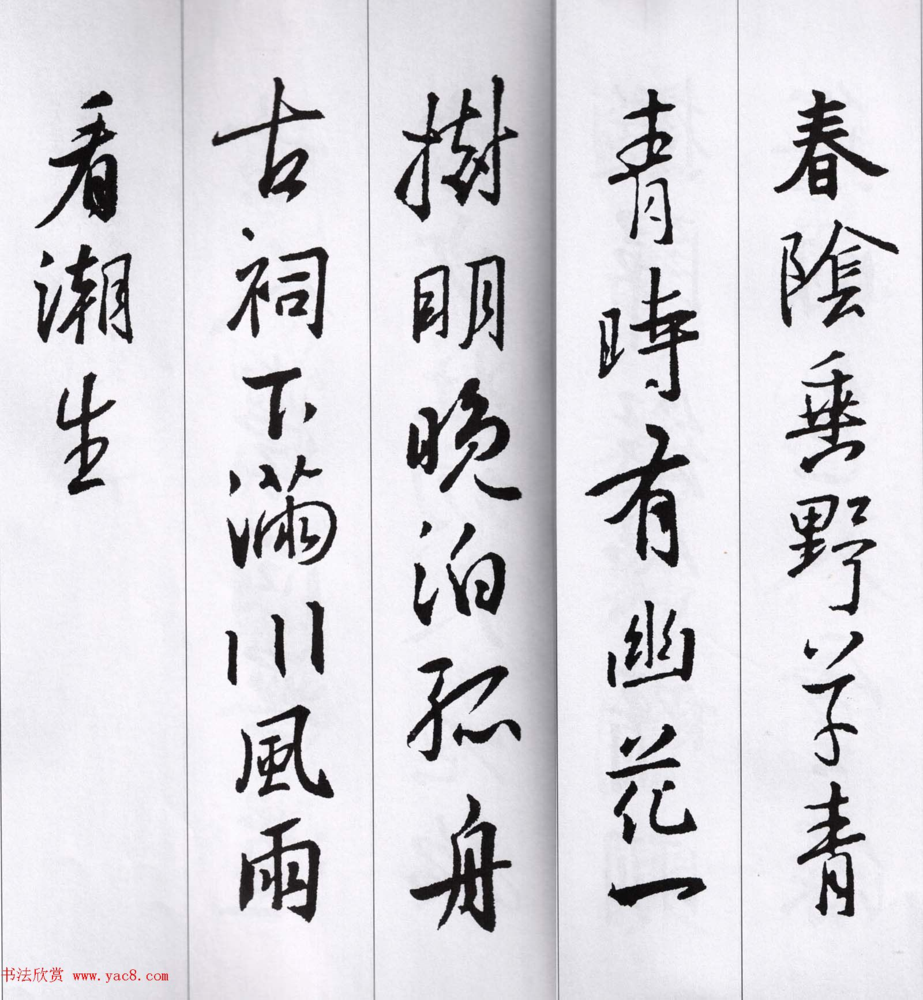 春陰垂野草青
青時有幽花一
樹明晚泊孤舟
古祠下滿川風雨
看潮生
书法欣赏 www.yac8.com